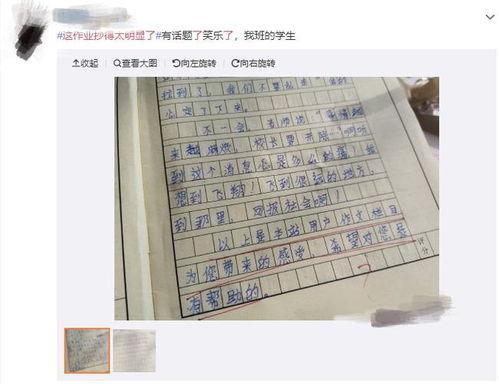 #这作业抄得太明显了#有话题了笑乐了，我班的学生
收起 查看大图 向左旋转 向右旋转
到了。我们不要
定了下来。
不一会，老师说：“
来越 ，校长要开 ”啊
到这个消息你是多么的
想到飞翔！飞到很远的地方。
到那里，回报社会啊！
以上是本站用户作文栏目
为您带来的感受，希望对您是
有帮助的。
评分
?